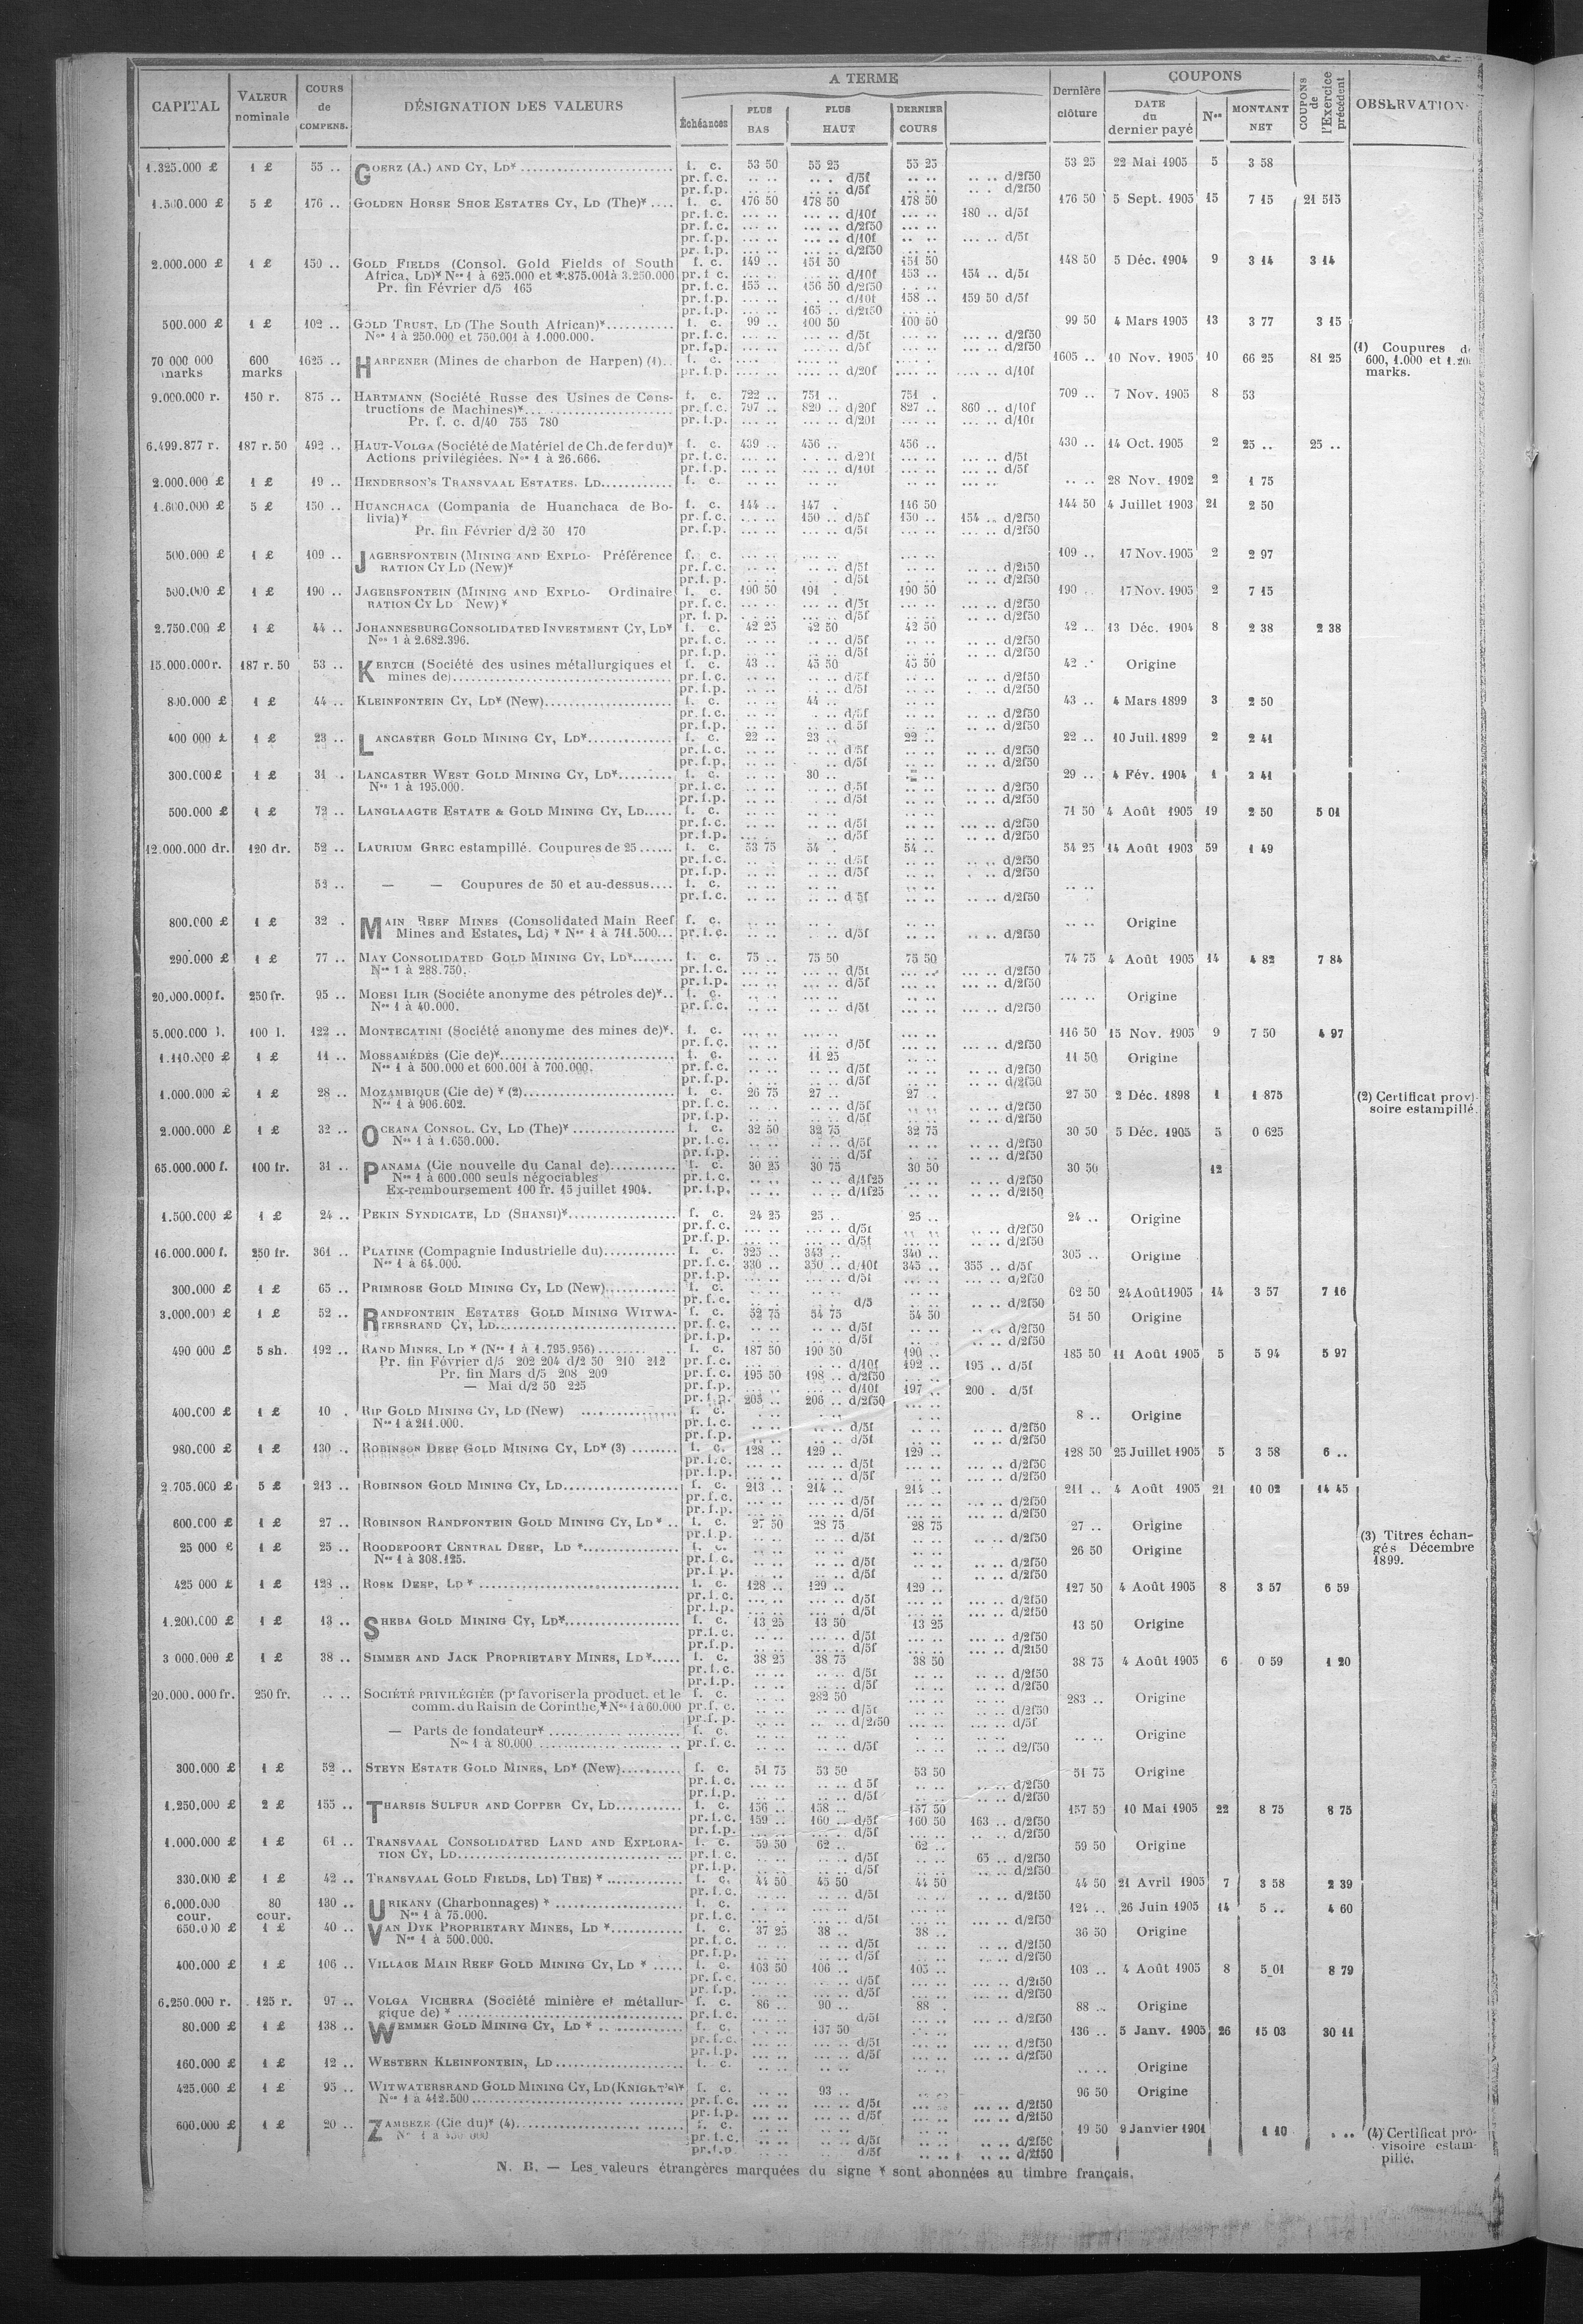 CAPITAL | VALEUR nominale | COURS de COMPENS. | DÉSIGNATION DES VALEURS | A TERME | Échéances | PLUS BAS | PLUS HAUT | DERNIER COURS | Dernière clôture | COUPONS | DATE du dernier payé | Nos | MONTANT NET | COUPONS de l'Exercice précédent | OBSERVATION
1.325.000 £ 1 £ 55 .. GOERZ (A.) AND CY, LD* f. c. 53 50 55 25 55 25 53 25 22 Mai 1905 5 3 58
pr. f. c. d/5f d/2f50
pr. f. p. d/5f d/2f50
5 £ 176 .. GOLDEN HORSE SHOE ESTATES CY, LD (The)* f. c. 176 50 178 50 178 50 176 50 5 Sept. 1905 15 7 15 21 515
pr. f. c. d/10f 180 .. d/5f
pr. f. c. d/2f50
pr. f. p. d/10f d/5f
pr. f. p. d/2f50
2.000.000 £ 1 £ 150 .. GOLD FIELDS (Consol. Gold Fields of South f. c. 149 .. 151 50 151 50 148 50 5 Déc. 1904 9 3 14 3 14
Africa, LD)* Nos 1 à 625.000 et 1.875.001 à 3.250.000 pr. f. c. d/10f 153 .. 154 .. d/5f
Pr. fin Février d/5 165 pr. f. c. 155 .. 156 50 d/2f50
pr. f. p. d/10f 158 .. 159 50 d/5f
pr. f. p. 165 .. d/2f50
500.000 £ 1 £ 102 .. GOLD TRUST, LD (The South African)* f. c. 99 .. 100 50 100 50 99 50 4 Mars 1905 13 3 77 3 15
Nos 1 à 250.000 et 750.001 à 1.000.000. pr. f. c. d/5f d/2f50
pr. f. p. d/5f d/2f50
70 000 000 marks 600 marks 1625 .. HARPENER (Mines de charbon de Harpen) (1). f. c. 1605 .. 10 Nov. 1905 10 66 25 81 25 (1) Coupures de
pr. f. p. d/20f d/10f 600, 1.000 et 1.20
marks.
9.000.000 r. 150 r. 875 .. HARTMANN (Société Russe des Usines de Cons- f. c. 722 .. 751 .. 751 . 709 .. 7 Nov. 1905 8 53
tructions de Machines)* pr. f. c. 797 .. 820 .. d/20f 827 .. 860 .. d/10f
Pr. f. c. d/40 755 780 pr. f. p. d/20f d/10f
6.499.877 r. 187 r. 50 492 .. HAUT-VOLGA (Société de Matériel de Ch. de fer du)* f. c. 439 .. 456 .. 456 .. 430 .. 14 Oct. 1905 2 25 .. 25 ..
Actions privilégiées. Nos 1 à 26.666. pr. f. c. d/20f d/5f
pr. f. p. d/10f d/5f
2.000.000 £ 1 £ 19 .. HENDERSON'S TRANSVAAL ESTATES. LD f. c. 28 Nov. 1902 2 1 75
1.600.000 £ 5 £ 150 .. HUANCHACA (Compania de Huanchaca de Bo- f. c. 144 .. 147 . 146 50 144 50 4 Juillet 1903 21 2 50
livia)* pr. f. c. 150 .. d/5f 150 .. 154 .. d/2f50
Pr. fin Février d/2 50 170 pr. f. p. d/5f d/2f50
500.000 £ 1 £ 109 .. JAGERSFONTEIN (MINING AND EXPLO- Préférence f. c. 109 .. 17 Nov. 1905 2 2 97
RATION CY LD (New)* pr. f. c. d/5f d/2f50
pr. f. p. d/5f d/2f50
500.000 £ 1 £ 190 .. JAGERSFONTEIN (MINING AND EXPLO- Ordinaire f. c. 190 50 191 . 190 50 190 .. 17 Nov. 1905 2 7 15
RATION CY LD New)* pr. f. c. d/5f d/2f50
pr. f. p. d/5f d/2f50
2.750.000 £ 1 £ 44 .. JOHANNESBURG CONSOLIDATED INVESTMENT CY, LD* f. c. 42 25 42 50 42 50 42 .. 13 Déc. 1904 8 2 38 2 38
Nos 1 à 2.682.396. pr. f. c. d/5f d/2f50
pr. f. p. d/5f d/2f50
15.000.000 r. 187 r. 50 53 .. KERTCH (Société des usines métallurgiques et f. c. 43 .. 45 50 45 50 42 .. Origine
mines de) pr. f. c. d/5f d/2f50
pr. f. p. d/5f d/2f50
800.000 £ 1 £ 44 .. KLEINFONTEIN CY, LD* (New) f. c. 44 .. 43 .. 4 Mars 1899 3 2 50
pr. f. c. d/5f d/2f50
pr. f. p. d/5f d/2f50
400 000 £ 1 £ 23 .. LANCASTER GOLD MINING CY, LD* f. c. 22 .. 23 .. 22 .. 22 .. 10 Juil. 1899 2 2 41
pr. f. c. d/5f d/2f50
pr. f. p. d/5f d/2f50
300.000 £ 1 £ 31 . LANCASTER WEST GOLD MINING CY, LD* f. c. 30 .. 29 .. 4 Fév. 1904 1 2 41
Nos 1 à 195.000. pr. f. c. d/5f d/2f50
pr. f. p. d/5f d/2f50
500.000 £ 1 £ 72 .. LANGLAAGTE ESTATE & GOLD MINING CY, LD f. c. 71 50 4 Août 1905 19 2 50 5 01
pr. f. c. d/5f d/2f50
pr. f. p. d/5f d/2f50
12.000.000 dr. 120 dr. 52 .. LAURIUM GREC estampillé. Coupures de 25 f. c. 53 75 54 . 54 .. 54 25 14 Août 1903 59 1 49
pr. f. c. d/5f d/2f50
pr. f. p. d/5f d/2f50
52 .. — — Coupures de 50 et au-dessus f. c.
pr. f. c. d/5f d/2f50
800.000 £ 1 £ 32 . MAIN REEF MINES (Consolidated Main Reef f. c. Origine
Mines and Estates, Ld) * Nos 1 à 711.500 pr. f. c. d/5f d/2f50
290.000 £ 1 £ 77 .. MAY CONSOLIDATED GOLD MINING CY, LD* f. c. 75 .. 75 50 75 50 74 75 4 Août 1905 14 4 82 7 84
Nos 1 à 288.750. pr. f. c. d/5f d/2f50
pr. f. p. d/5f d/2f50
20.000.000 f. 250 fr. 95 .. MOESI ILIR (Sociéte anonyme des pétroles de)* f. c. Origine
Nos 1 à 40.000. pr. f. c. d/5f d/2f50
5.000.000 l. 100 l. 122 .. MONTECATINI (Société anonyme des mines de)*. f. c. 116 50 15 Nov. 1905 9 7 50 4 97
pr. f. c. d/5f d/2f50
1.110.000 £ 1 £ 11 .. MOSSAMÉDÈS (Cie de)* f. c. 11 25 11 50 Origine
Nos 1 à 500.000 et 600.001 à 700.000. pr. f. c. d/5f d/2f50
pr. f. p. d/5f d/2f50
1.000.000 £ 1 £ 28 .. MOZAMBIQUE (Cie de) * (2) f. c. 26 75 27 .. 27 . 27 50 2 Déc. 1898 1 1 875 (2) Certificat provi-
Nos 1 à 906.602. pr. f. c. d/5f d/2f50 soire estampillé.
pr. f. p. d/5f d/2f50
2.000.000 £ 1 £ 32 .. OCEANA CONSOL. CY, LD (The)* f. c. 32 50 32 75 32 75 30 50 5 Déc. 1905 5 0 625
Nos 1 à 1.650.000. pr. f. c. d/5f d/2f50
pr. f. p. d/5f d/2f50
65.000.000 f. 100 fr. 31 .. PANAMA (Cie nouvelle du Canal de) f. c. 30 25 30 75 30 50 30 50 12
Nos 1 à 600.000 seuls négociables pr. f. c. d/1f25 d/2f50
Ex-remboursement 100 fr. 15 juillet 1904. pr. f. p. d/1f25 d/2f50
1.500.000 £ 1 £ 24 .. PEKIN SYNDICATE, LD (SHANSI)* f. c. 24 25 25 .. 25 .. 24 .. Origine
pr. f. c. d/5f d/2f50
pr. f. p. d/5f d/2f50
16.000.000 f. 250 fr. 361 .. PLATINE (Compagnie Industrielle du) f. c. 325 .. 343 .. 340 .. 305 .. Origine
Nos 1 à 64.000. pr. f. c. 330 .. 350 .. d/10f 345 .. 355 .. d/5f
pr. f. p. d/5f d/2f50
300.000 £ 1 £ 65 .. PRIMROSE GOLD MINING CY, LD (New) f. c. 62 50 24 Août 1905 14 3 57 7 16
pr. f. c. d/5 d/2f50
3.000.000 £ 1 £ 52 .. RANDFONTEIN ESTATES GOLD MINING WITWA- f. c. 52 75 54 75 54 50 51 50 Origine
TERSRAND CY, LD pr. f. c. d/5f d/2f50
pr. f. p. d/5f d/2f50
490 000 £ 5 sh. 192 .. RAND MINES, LD * (Nos 1 à 1.795.956) f. c. 187 50 190 50 190 .. 185 50 11 Août 1905 5 5 94 5 97
Pr. fin Février d/5 202 204 d/2 50 210 212 pr. f. c. d/10f 192 .. 195 .. d/5f
Pr. fin Mars d/5 208 209 pr. f. c. 195 50 198 .. d/2f50
— Mai d/2 50 225 pr. f. p. d/10f 197 .. 200 . d/5f
pr. f. p. 205 .. 206 .. d/2f50
400.000 £ 1 £ 10 . RIP GOLD MINING CY, LD (New) f. c. 8 .. Origine
Nos 1 à 211.000. pr. f. c. d/5f d/2f50
pr. f. p. d/5f d/2f50
980.000 £ 1 £ 130 .. ROBINSON DEEP GOLD MINING CY, LD* (3) f. c. 128 .. 129 .. 129 .. 128 50 25 Juillet 1905 5 3 58 6 ..
pr. f. c. d/5f d/2f50
pr. f. p. d/5f d/2f50
2.705.000 £ 5 £ 213 .. ROBINSON GOLD MINING CY, LD f. c. 213 .. 214 .. 214 .. 211 .. 4 Août 1905 21 10 02 14 45
pr. f. c. d/5f d/2f50
pr. f. p. d/5f d/2f50
600.000 £ 1 £ 27 .. ROBINSON RANDFONTEIN GOLD MINING CY, LD * f. c. 27 50 28 75 28 75 27 .. Origine
pr. f. p. d/5f d/2f50 (3) Titres échan-
25 000 £ 1 £ 25 .. ROODEPOORT CENTRAL DEEP, LD * f. c. 26 50 Origine gés Décembre
Nos 1 à 308.125. pr. f. c. d/5f d/2f50 1899.
pr. f. p. d/5f d/2f50
425 000 £ 1 £ 128 .. ROSE DEEP, LD * f. c. 128 .. 129 .. 129 .. 127 50 4 Août 1905 8 3 57 6 59
pr. f. c. d/5f d/2f50
pr. f. p. d/5f d/2f50
1.200.000 £ 1 £ 13 .. SHEBA GOLD MINING CY, LD* f. c. 13 25 13 50 13 25 13 50 Origine
pr. f. c. d/5f d/2f50
pr. f. p. d/5f d/2f50
3 000.000 £ 1 £ 38 .. SIMMER AND JACK PROPRIETARY MINES, LD* f. c. 38 25 38 75 38 50 38 75 4 Août 1905 6 0 59 1 20
pr. f. c. d/5f d/2f50
pr. f. p. d/5f d/2f50
20.000.000 fr. 250 fr. .. .. SOCIÉTÉ PRIVILÉGIÉE (pr favoriser la product. et le f. c. 282 50 283 .. Origine
comm. du Raisin de Corinthe,* Nos 1 à 60.000 pr. f. c. d/5f d/2f50
pr. f. p. d/2f50 d/5f
— Parts de fondateur* f. c. Origine
Nos 1 à 80.000 pr. f. c. d/5f d2/f50
300.000 £ 1 £ 52 .. STEYN ESTATE GOLD MINES, LD* (New) f. c. 51 75 53 50 53 50 51 75 Origine
pr. f. c. d 5f d/2f50
pr. f. p. d/5f d/2f50
1.250.000 £ 2 £ 155 .. THARSIS SULFUR AND COPPER CY, LD f. c. 156 .. 158 .. 157 50 157 50 10 Mai 1905 22 8 75 8 75
pr. f. c. 159 .. 160 .. d/5f 160 50 163 .. d/2f50
pr. f. p. d/5f d/2f50
1.000.000 £ 1 £ 61 .. TRANSVAAL CONSOLIDATED LAND AND EXPLORA- f. c. 59 50 62 .. 62 .. 59 50 Origine
TION CY, LD pr. f. c. d/5f 65 .. d/2f50
pr. f. p. d/5f d/2f50
330.000 £ 1 £ 42 .. TRANSVAAL GOLD FIELDS, LD) THE) * f. c. 44 50 45 50 44 50 44 50 21 Avril 1905 7 3 58 2 39
pr. f. c. d/5f d/2f50
6.000.000 cour. 80 cour. 130 .. URIKANY (Charbonnages) * f. c. 124 .. 26 Juin 1905 14 5 .. 4 60
Nos 1 à 75.000. pr. f. c. d/5f d/2f50
650.000 £ 1 £ 40 .. VAN DYK PROPRIETARY MINES, LD * f. c. 37 25 38 .. 38 .. 36 50 Origine
Nos 1 à 500.000. pr. f. c. d/5f d/2f50
pr. f. p. d/5f d/2f50
400.000 £ 1 £ 106 .. VILLAGE MAIN REEF GOLD MINING CY, LD * f. c. 103 50 106 .. 105 .. 103 .. 4 Août 1905 8 5 01 8 79
pr. f. c. d/5f d/2f50
pr. f. p. d/5f d/2f50
6.250.000 r. 125 r. 97 .. VOLGA VICHERA (Société minière et métallur- f. c. 86 .. 90 .. 88 . 88 .. Origine
gique de) * pr. f. c. d/5f d/2f50
80.000 £ 1 £ 138 .. WEMMER GOLD MINING CY, LD * f. c. 137 50 136 .. 5 Janv. 1905 26 15 03 30 11
pr. f. c. d/5f d/2f50
pr. f. p. d/5f d/2f50
160.000 £ 1 £ 12 .. WESTERN KLEINFONTEIN, LD f. c. Origine
425.000 £ 1 £ 95 .. WITWATERSRAND GOLD MINING CY, LD (KNIGHT'S)* f. c. 93 .. 96 50 Origine
Nos 1 à 412.500 pr. f. c. d/5f d/2f50
pr. f. p. d/5f d/2f50
600.000 £ 1 £ 20 .. ZAMBEZE (Cie du)* (4) f. c. 19 50 9 Janvier 1901 1 10 (4) Certificat pro-
pr. f. c. d/5f d/2f50 visoire estam-
pr. f. p. d/5f d/2f50 pillé.
N. B. — Les valeurs étrangères marquées du signe * sont abonnées au timbre français.